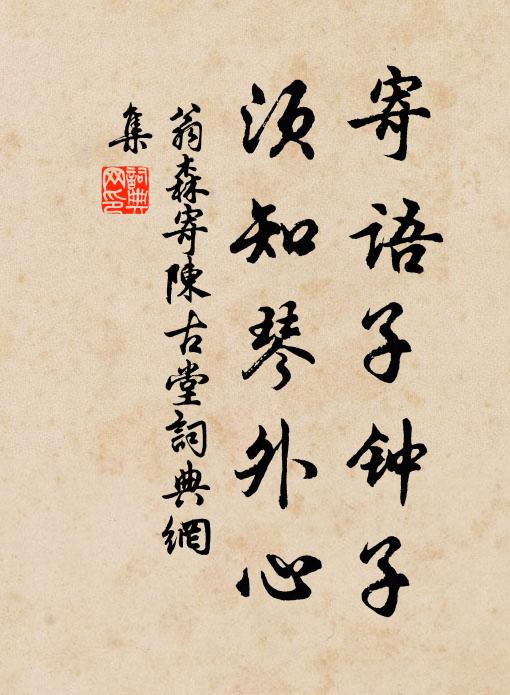 寄语子钟子
须知琴外心
翁森寄陳古堂詞典網
集
詞典
网印